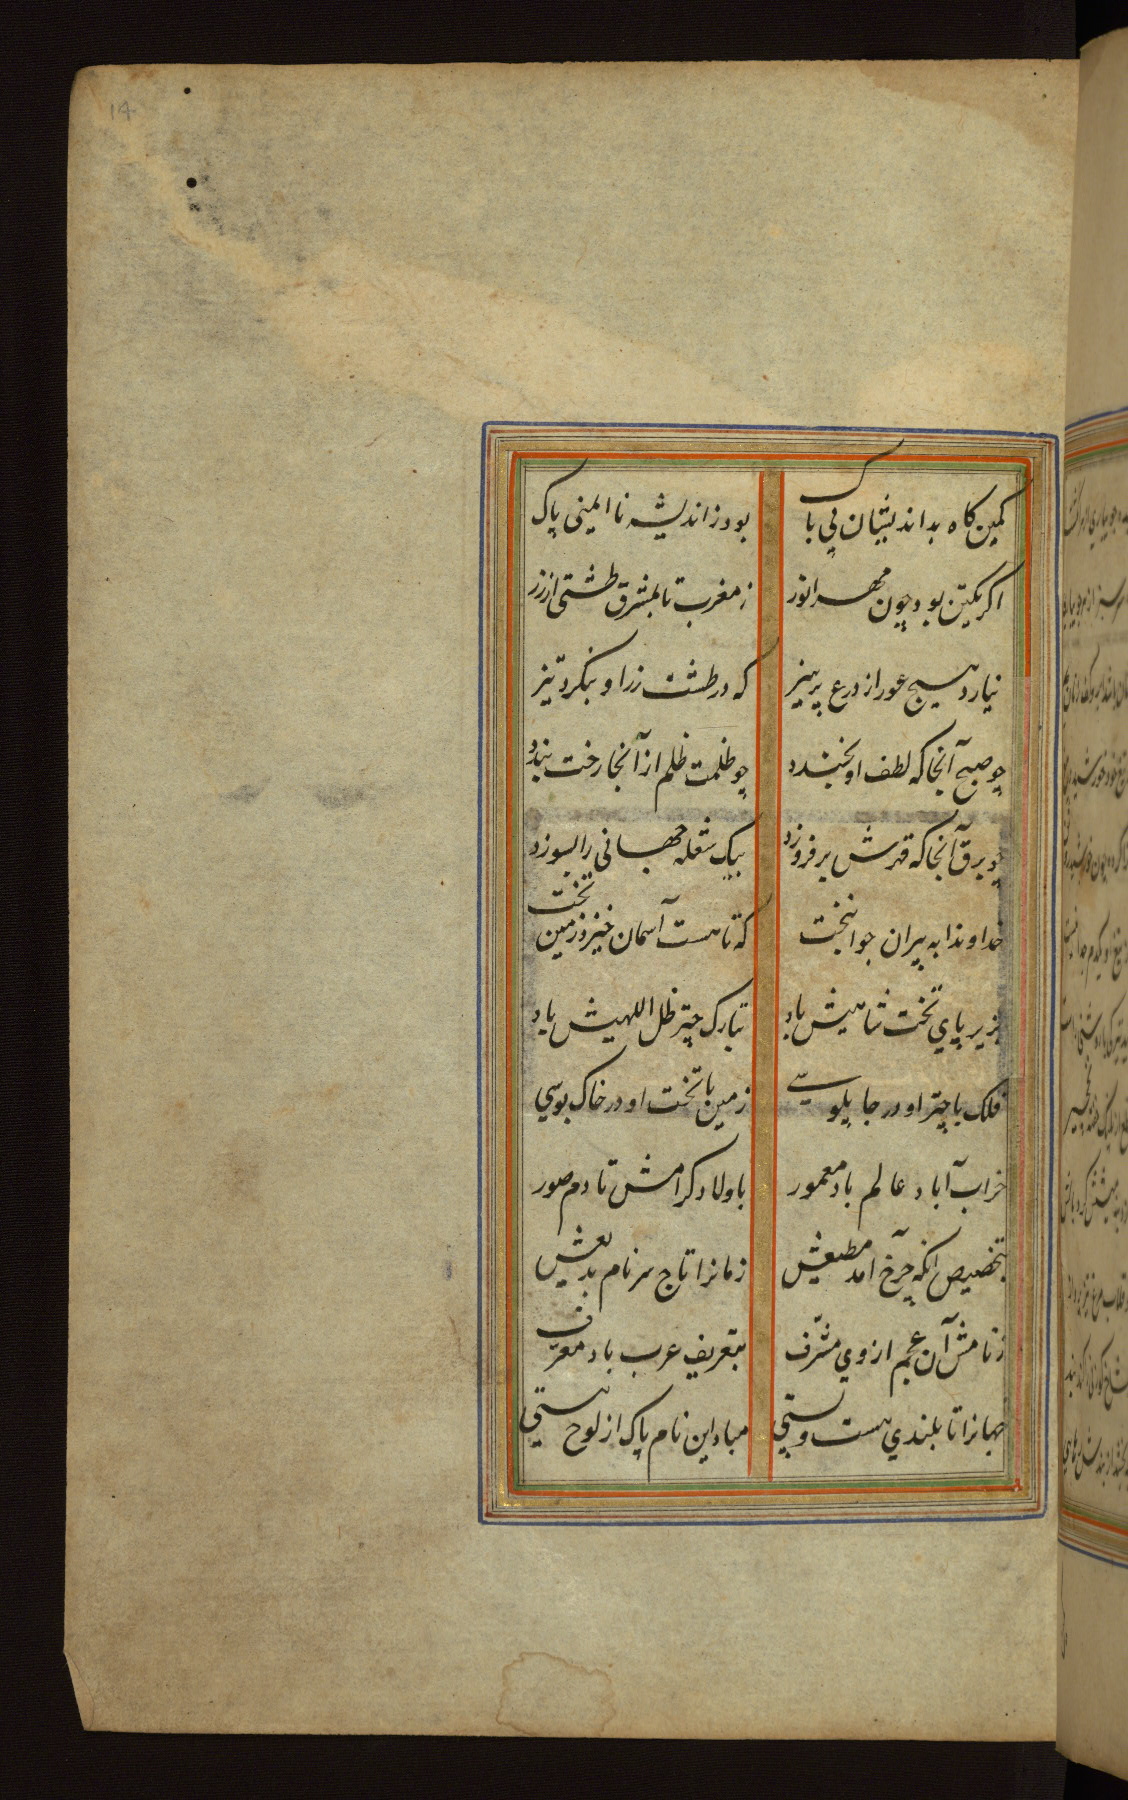 14
کمین کاه بداندیشان پی باک
بود ز اندیشه نا ایمنی پاک
اکر یکتن بود چون مهر انور
ز مغرب تا بمشرق طشتی از زر
نیارد هیچ عور از درع پرهیز
که در طشت زر او بنکرد تیز
چو صبح آنجا که لطف او بخندد
چو ظلمت ظلم از آنجا رخت بندد
چو برق آنجا که قهرش برفروزد
بیک شعله جهانی را بسوزد
خداوندا به پیران جوانبخت
که تا هست آسمان خیز و زمین تخت
بزیر پاي تخت شاهیش باد
تبارک چتر ظل اللهیش باد
فلک با چتر او در جاپلوسی
زمین با تخت او در خاک بوسي
خراب آباد عالم باد معمور
باولاد کرامش تا دم صور
بتخصیص انکه چرخ آمد مطیعش
زمانرا تاج سر نام بدیعش
ز نامش آن عجم از وي مشرف
بتعریف عرب باد معرف
جهانرا تا بلندي هست و پستی
مباد این نام پاک از لوح هستی